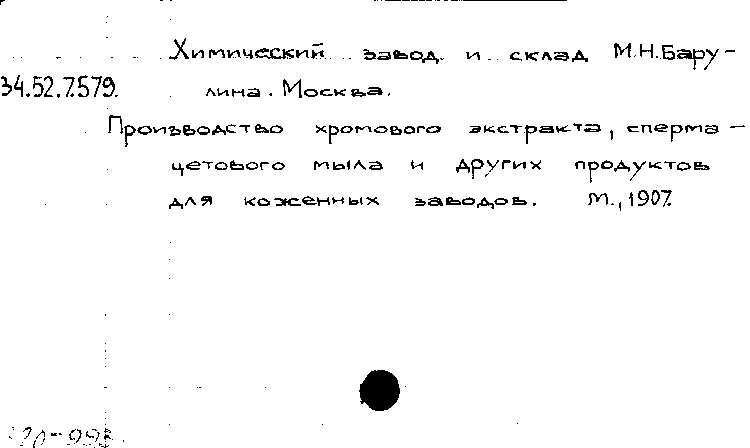 Химический завод и склад М.Н.Бару-
34.52.7.579. лина. Москва.
Производство хромового экстракта, сперма-
цетового мыла и других продуктов
для коженных заводов. М., 1907.